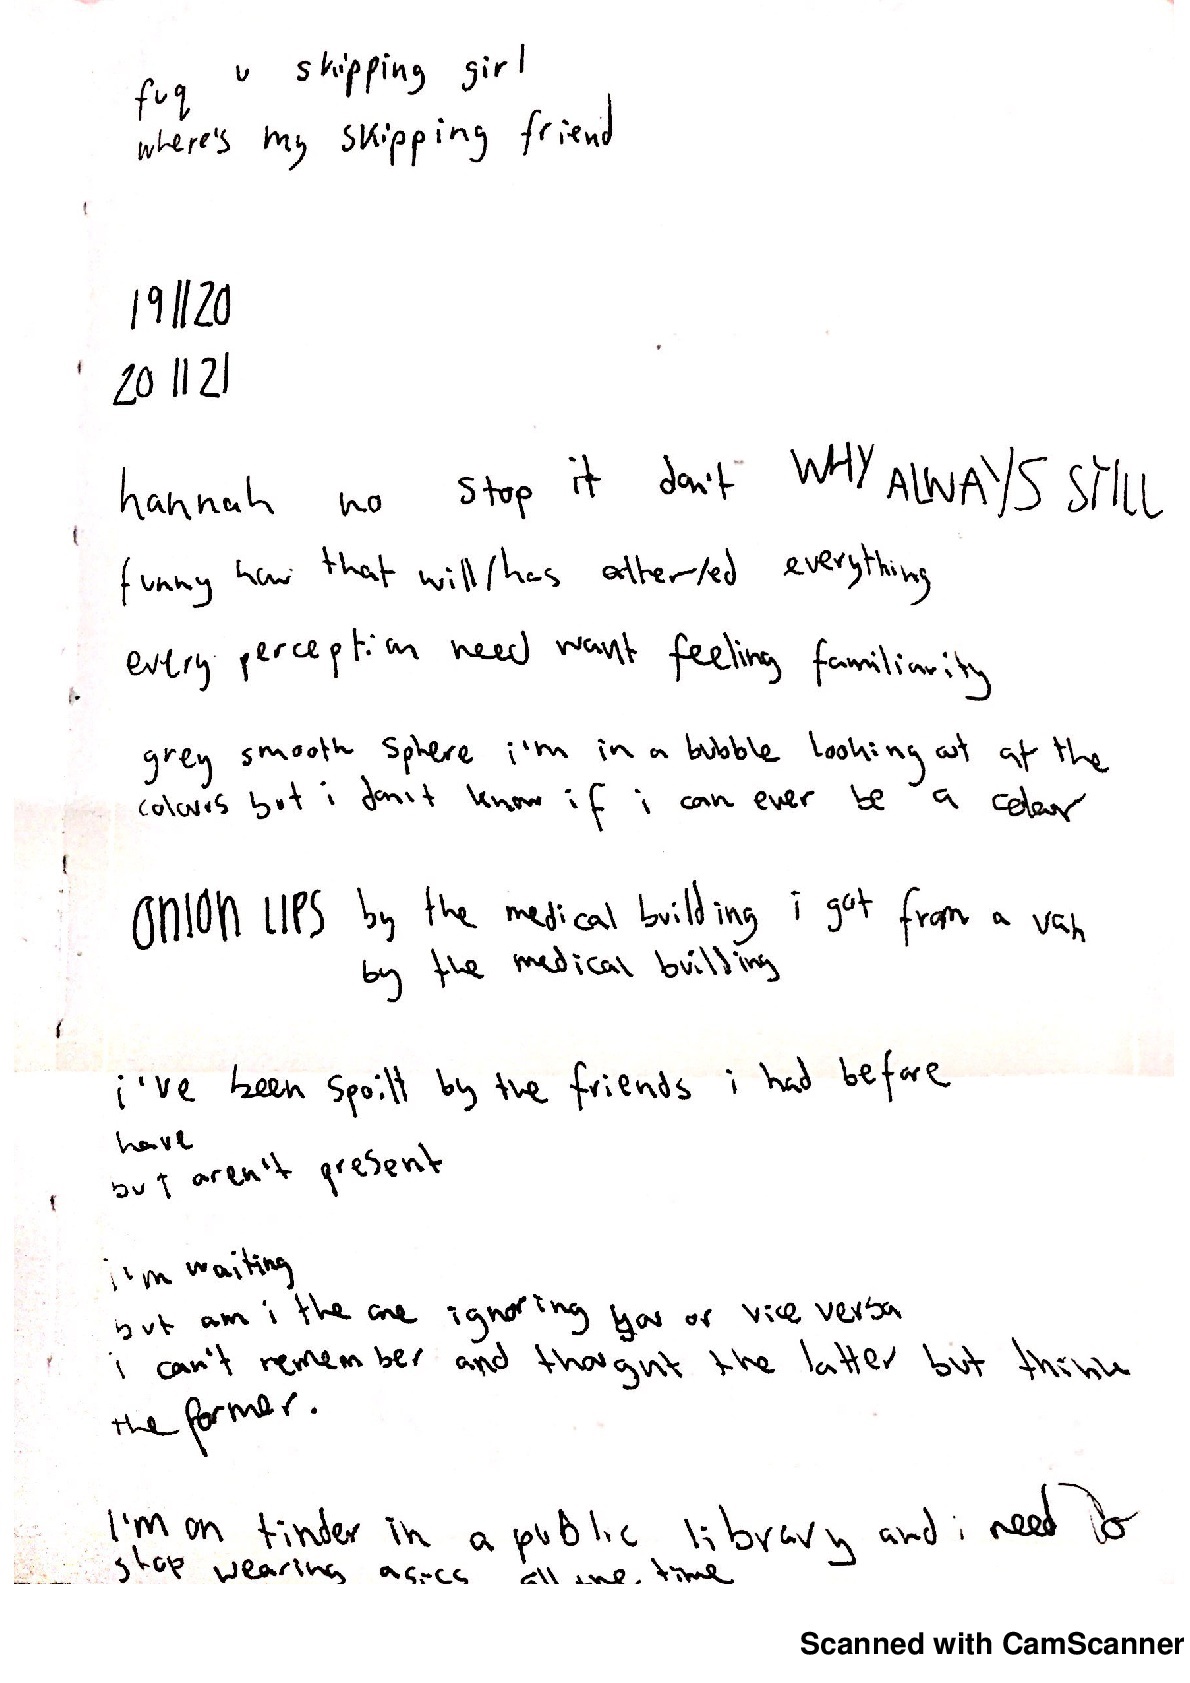 fuq u skipping girl
where's my skipping friend
19//20
20//21
hannah no stop it don't WHY ALWAYS STILL
funny how that will/has alter/ed everything
every perception need want feeling familiarity
grey smooth sphere i'm in a bubble looking out at the
colours but i don't know if i can ever be a colour
ONION LIPS by the medical building i got from a van
by the medical building
i've been spoilt by the friends i had before
have
but aren't present
i'm waiting
but am i the one ignoring you or vice versa
i can't remember and thought the latter but think
the former.
I'm on tinder in a public library and i need to
stop wearing asics all the time
Scanned with CamScanner